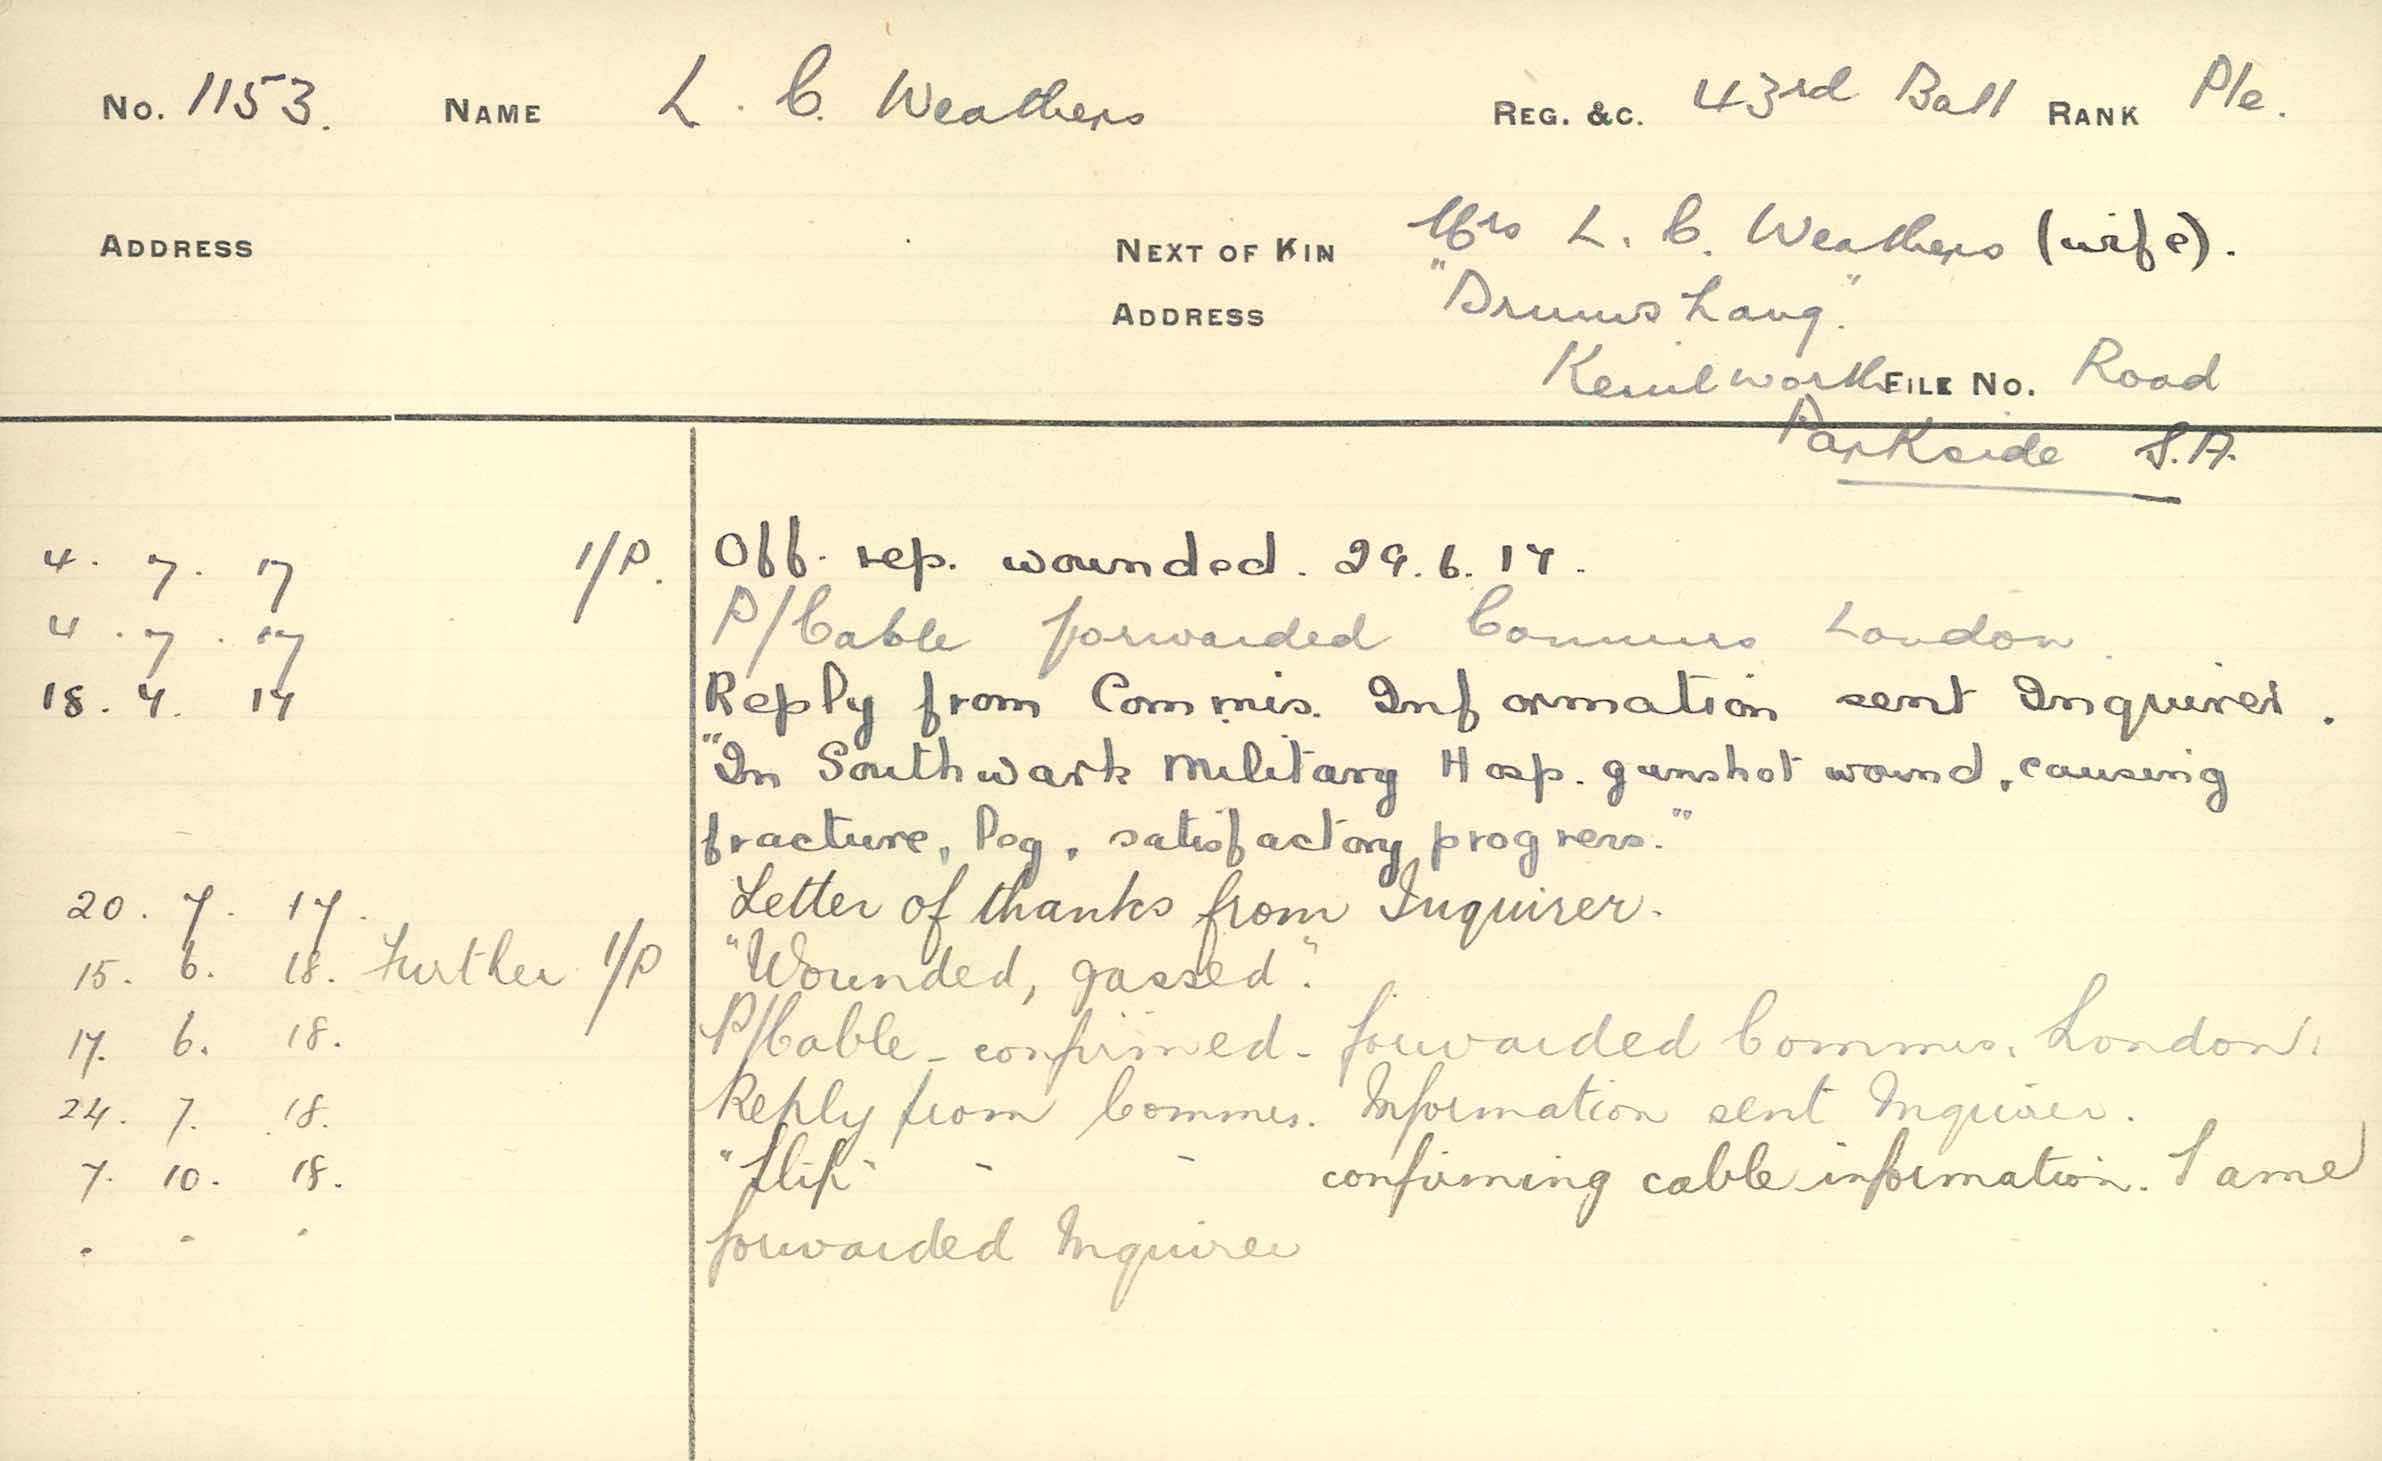 No. 1153. NAME L. C. Weathers REG. &C. 43rd Batt RANK Pte.
ADDRESS NEXT OF KIN Mrs L. C. Weathers (wife).
ADDRESS "Drumshang".
Kenilworth FILE No. Road
Parkside S.A.
4. 7. 17 I/P. Off. rep. wounded. 29.6.17.
4. 7. 17 P/Cable forwarded Commrs London.
18. 7. 17 Reply from Commis. Information sent Inquirer.
"In Southwark Military Hosp. gunshot wound, causing
fracture, leg, satisfactory progress."
20. 7. 17. Letter of thanks from Inquirer.
15. 6. 18. Further I/P "Wounded, gassed".
17. 6. 18. P/Cable - confirmed - forwarded Commrs. London.
24. 7. 18. Reply from Commrs. Information sent Inquirer.
7. 10. 18. "Slip" - - confirming cable information. Same
" " " forwarded Inquirer